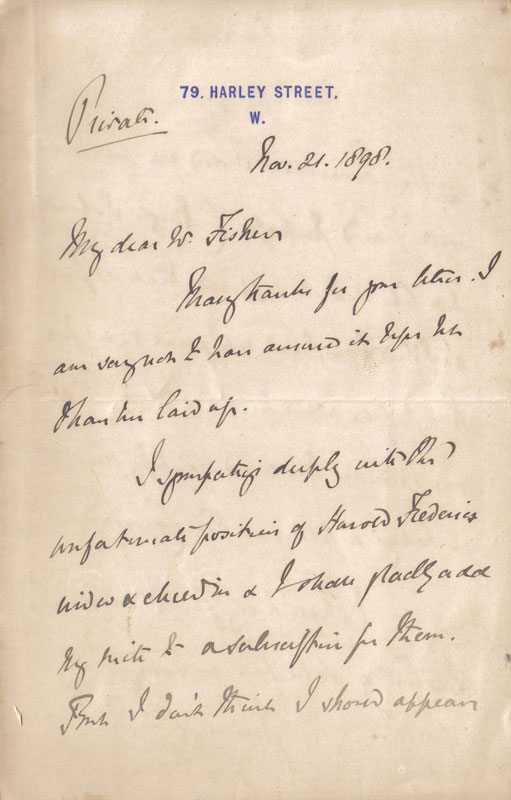 79, HARLEY STREET,
W.
Private.
Nov. 21. 1898.
My dear Mr. Fisher
Many thanks for your letter. I
am sorry not to have answered it before but
I have been laid up.
I sympathise deeply with the
unfortunate position of Harold Frederics
widow & children & I shall gladly add
my mite to a subscription for them.
But I don't think I should appear